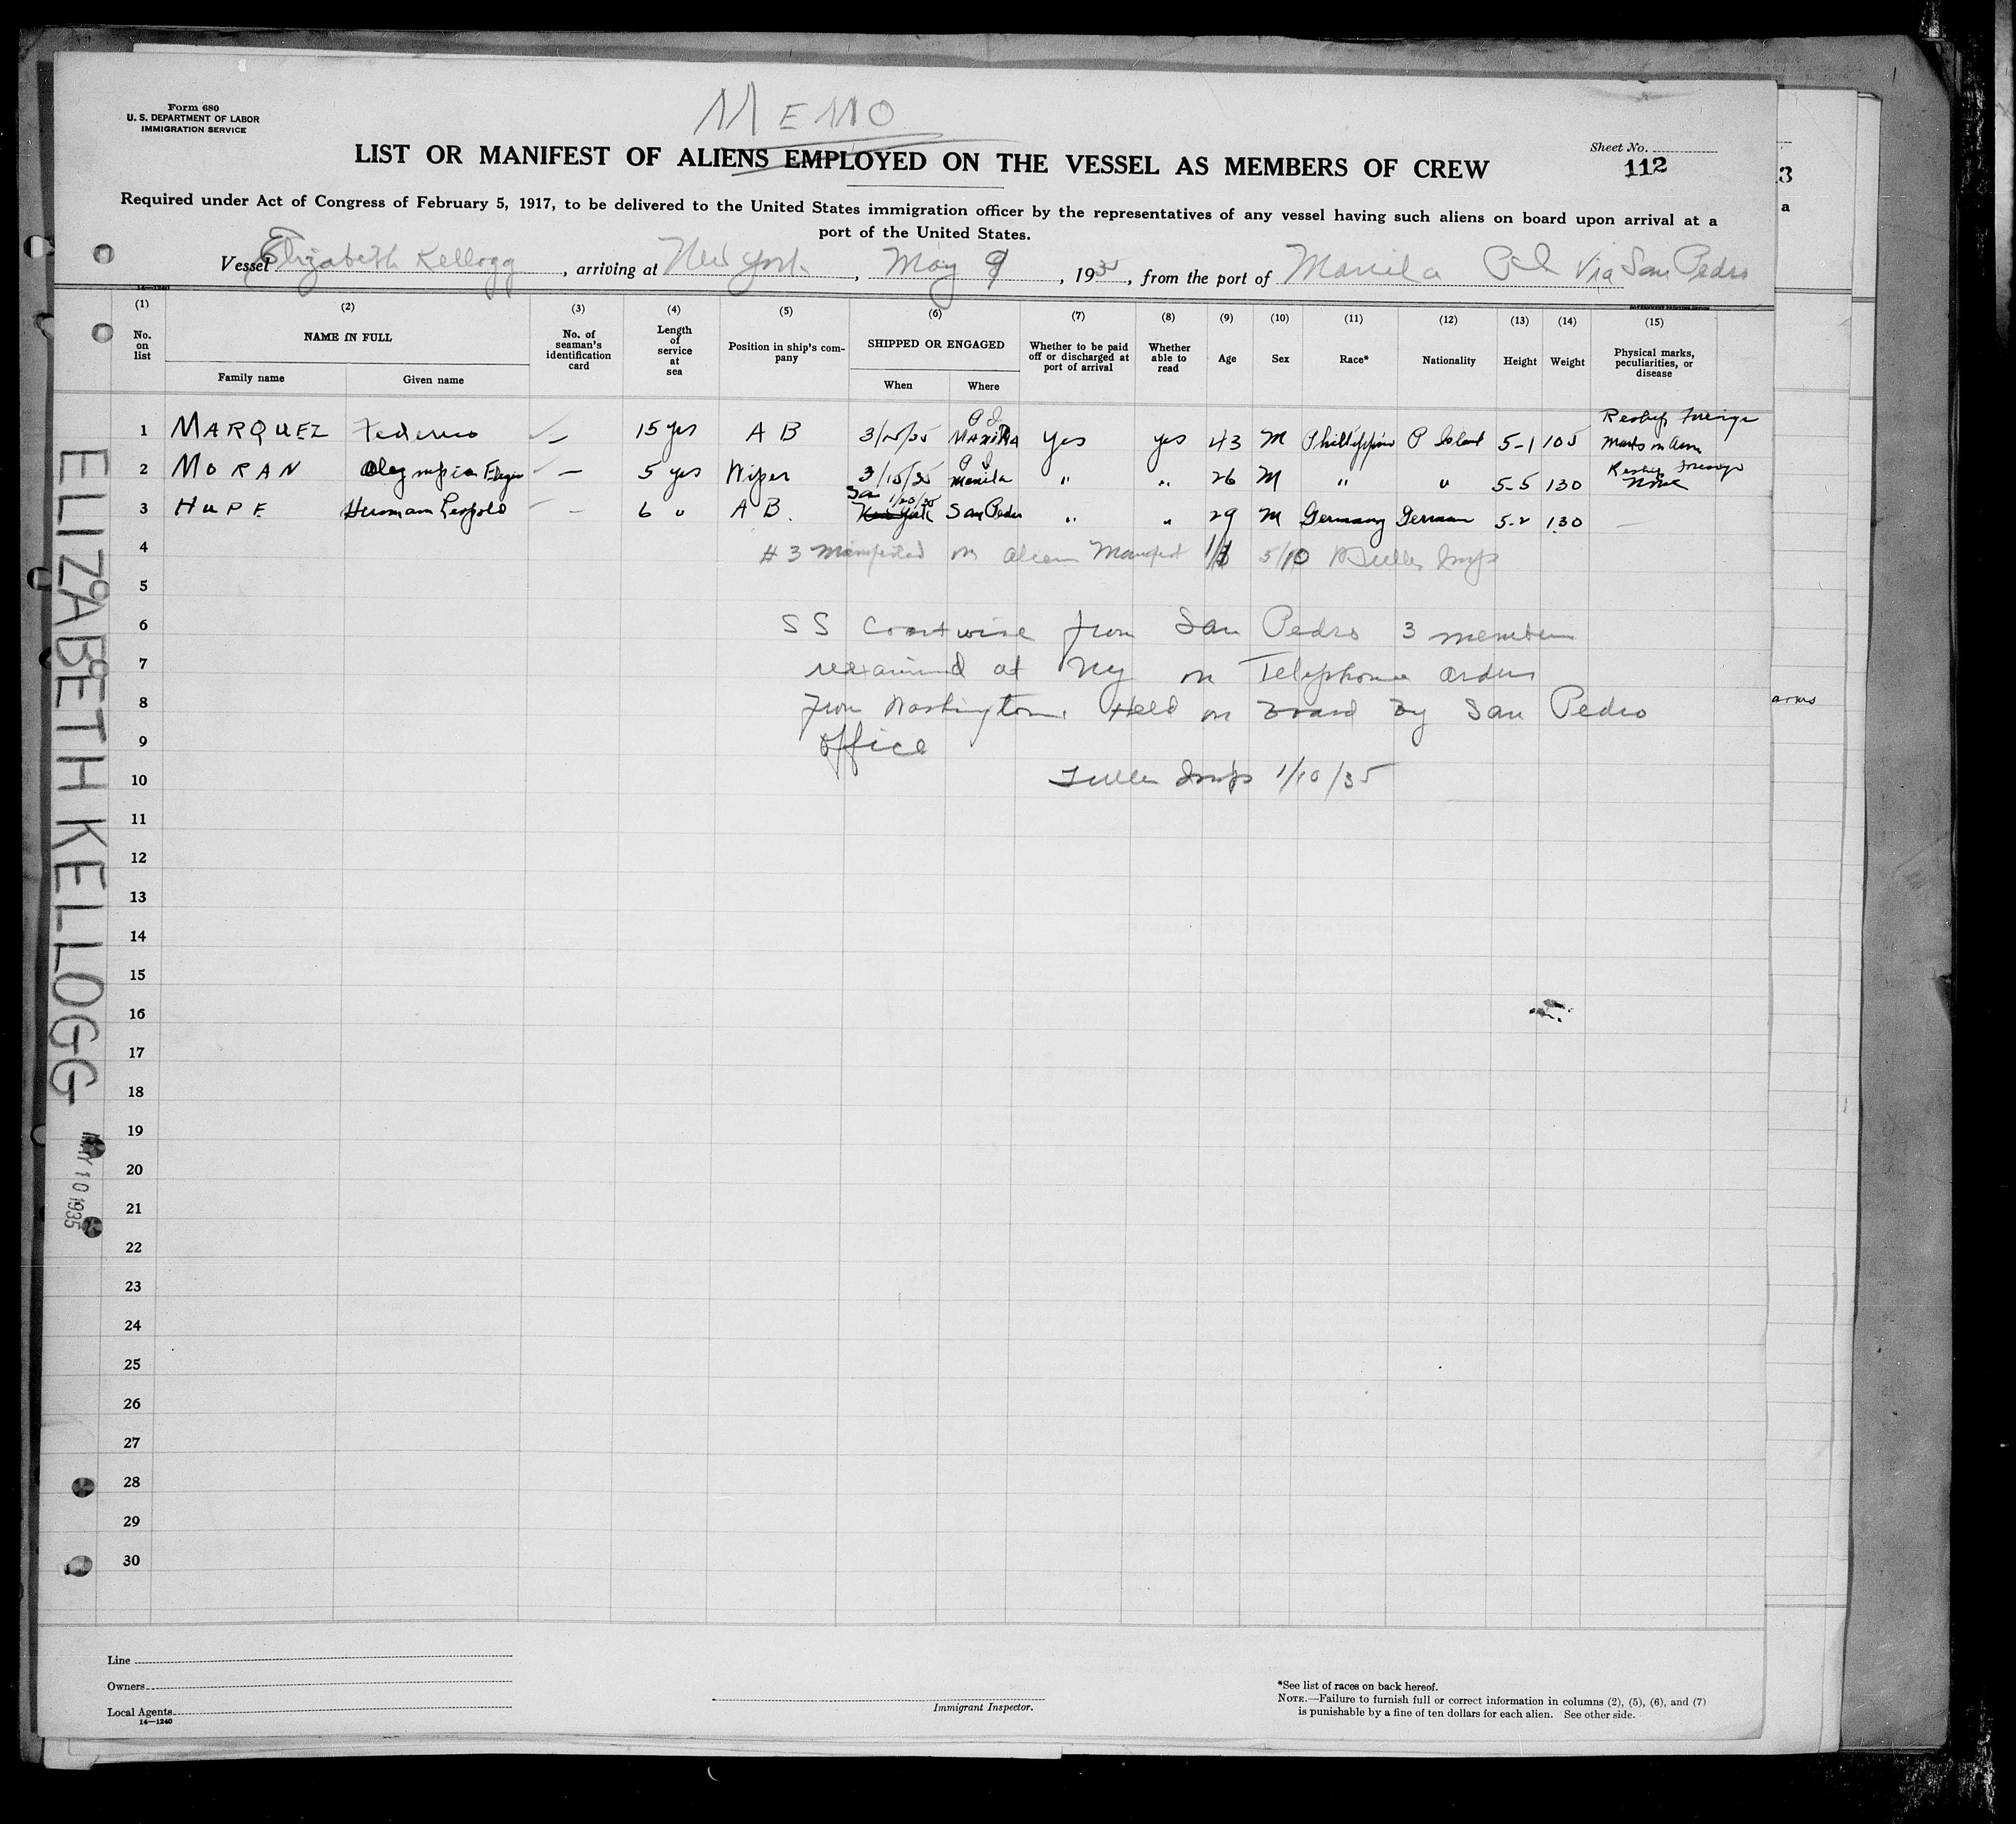 MEMO
Form 680
U. S. DEPARTMENT OF LABOR
IMMIGRATION SERVICE
LIST OR MANIFEST OF ALIENS EMPLOYED ON THE VESSEL AS MEMBERS OF CREW
Sheet No.
112
3
a
Required under Act of Congress of February 5, 1917, to be delivered to the United States immigration officer by the representatives of any vessel having such aliens on board upon arrival at a
port of the United States.
Vessel Elizabeth Kellogg, arriving at New York, May 9, 1935, from the port of Manila P I Via San Pedro
14—1240
(1) (2) (3) (4) (5) (6) (7) (8) (9) (10) (11) (12) (13) (14) (15)
No. on list
NAME IN FULL
Family name
Given name
No. of seaman's identification card
Length of service at sea
Position in ship's company
SHIPPED OR ENGAGED
When
Where
Whether to be paid off or discharged at port of arrival
Whether able to read
Age
Sex
Race*
Nationality
Height
Weight
Physical marks, peculiarities, or disease
1 MARQUEZ Federico — 15 yrs A B 3/15/35 P I Manila yes yes 43 M Phillippine P Island 5-1 105 Reship Foreign Marks on Arm
2 MORAN — 5 yrs Wiper 3/15/35 P I Manila " " 26 M " " 5-5 130 Reship Foreign None
3 HUPE Herman Leopold — 6 " A B. San 1/20/35 New York San Pedro " " 29 M Germany German 5-2 130 —
4 # 3 Manifested on alien Manifest 5/10 Fuller Insp
5
6 SS Coastwise from San Pedro 3 members
7 examined at NY on Telephone orders
8 from Washington. Held on Board By San Pedro
arms
9 office
10 Fuller Insp 1/10/35
11
12
13
14
15
16
17
18
19
20
21
22
23
24
25
26
27
28
29
30
ELIZABETH KELLOGG
MAY 10 1935
Line
Owners
Local Agents
14—1240
Immigrant Inspector.
*See list of races on back hereof.
NOTE.—Failure to furnish full or correct information in columns (2), (5), (6), and (7)
is punishable by a fine of ten dollars for each alien. See other side.